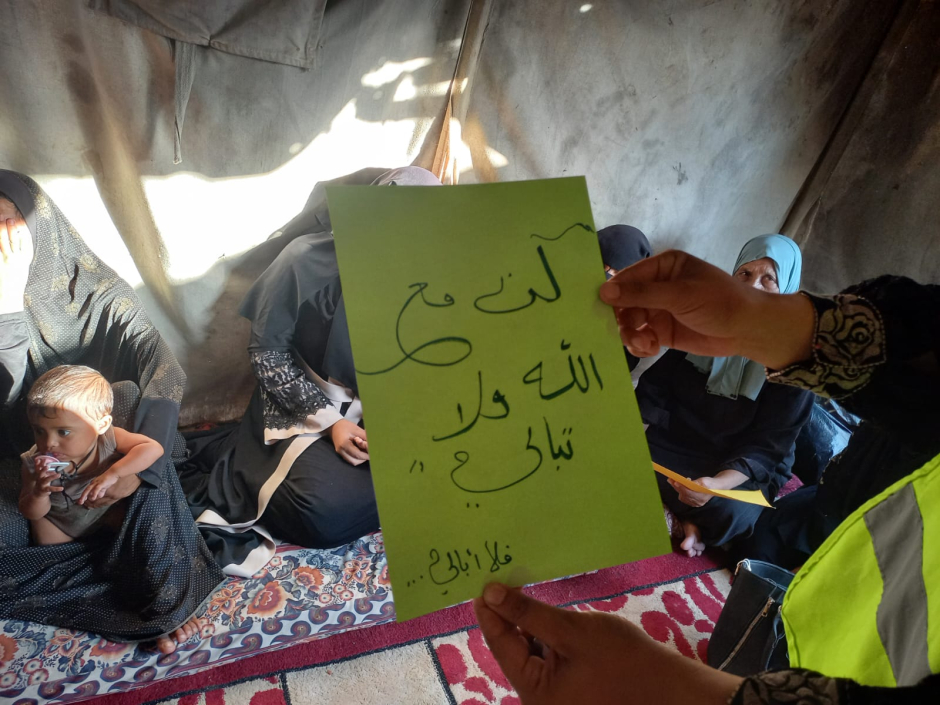 كن مع
الله ولا
تبالي
فلا أبالي...